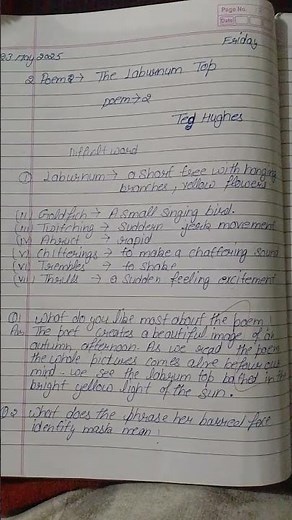 Page No.
Date:
Friday
23 May 2025
2 Poem 2 → The Laburnum Top
poem → 2
Ted Hughes
Difficult word
(I) Laburnum → a short tree with hanging
branches, yellow flowers
(II) Goldfich → A small singing bird.
(III) Twitching → Suddern jerk movement
(IV) Abruct → rapid
(V) Chitterings → to make a chattering sound
(VI) Trembles → to shake
(VII) Thrills → a sudden feeling excitement
Q1 What do you like most about the poem
Ans. The poet creates a beautiful image of an
autumn afternoon. As we read the poem
the whole pictures comes alive before our
mind - we see the labrum top bathed in the
bright yellow light of the sun.
Q.2 What does the phrase her barred face
identity mask mean!